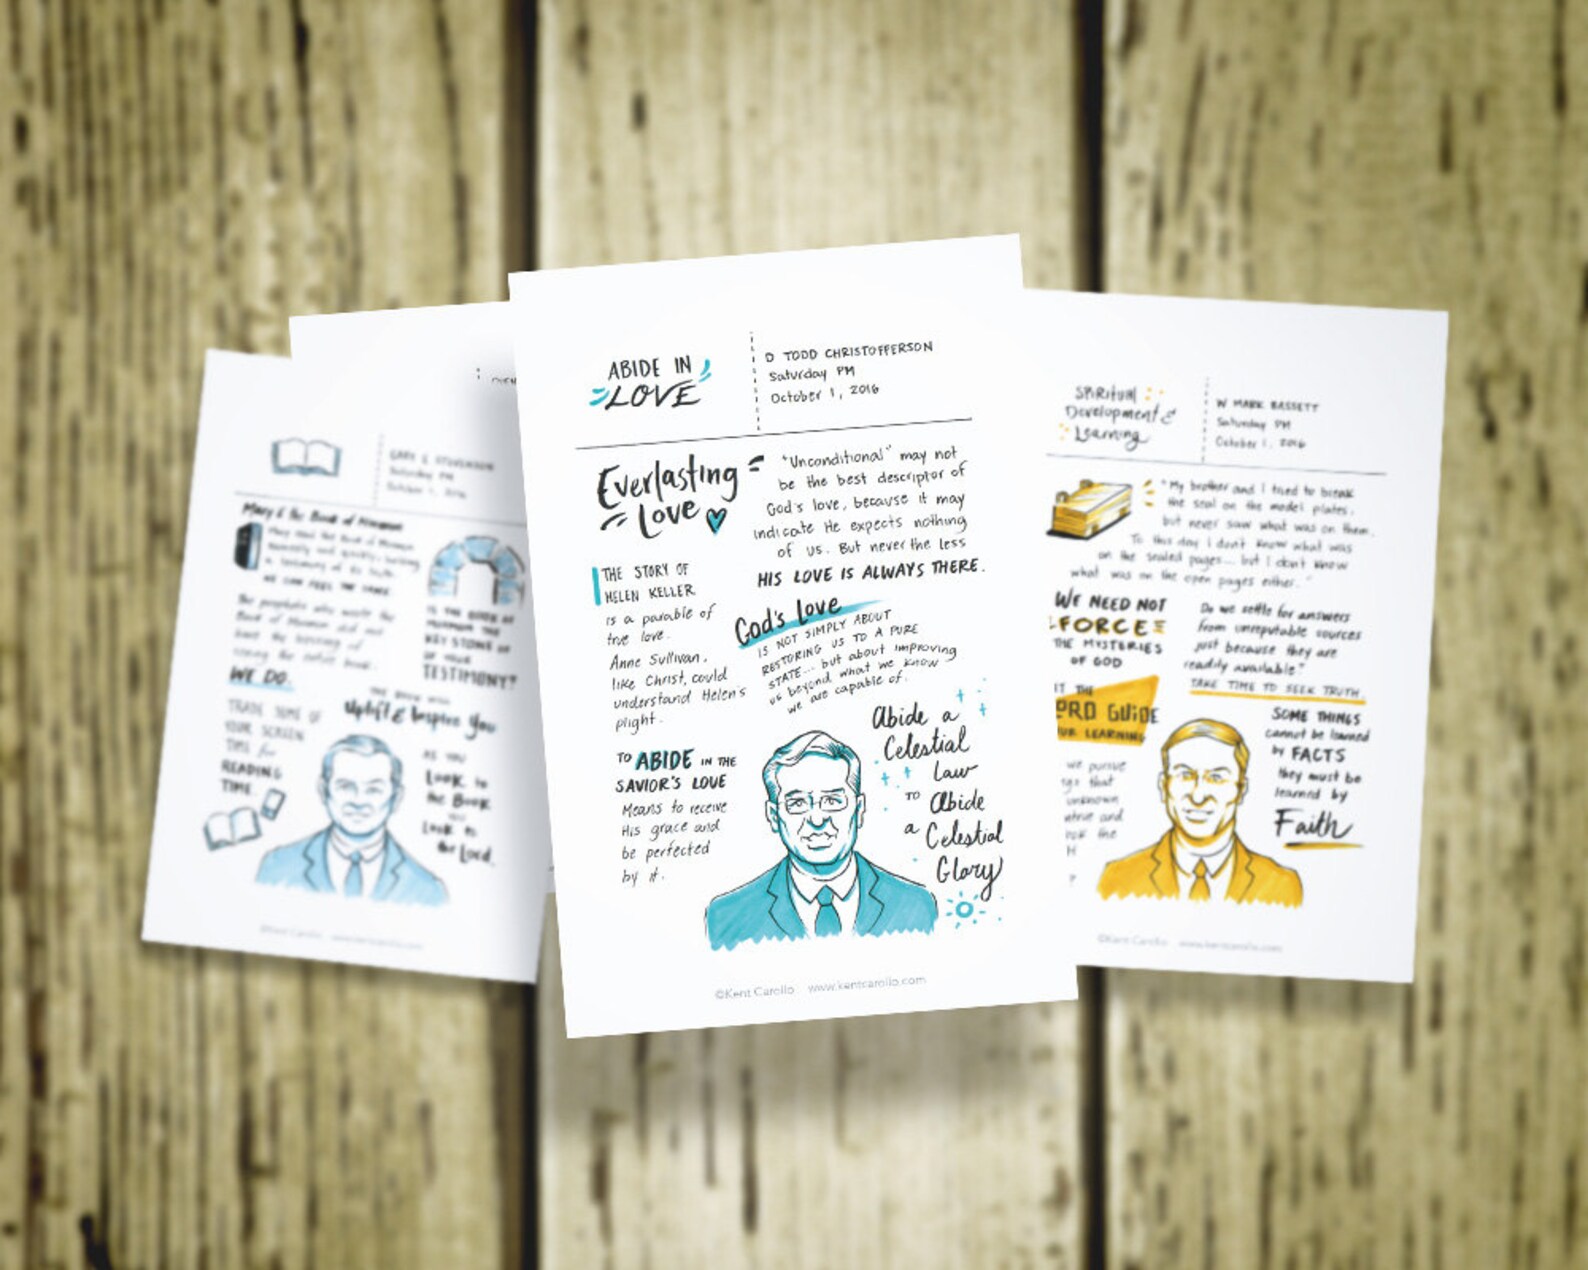 GARY E STEVENSON
Saturday PM
October 1, 2016
Mary & the Book of Mormon
Mary read the Book of Mormon
WE CAN FEEL THE SAME.
The prophets who wrote the
Book of Mormon did not
have the blessing of
seeing the entire book.
WE DO.
IS THE BOOK OF
MORMON THE
KEYSTONE OF
OF YOUR
TESTIMONY?
TRADE SOME OF
YOUR SCREEN
TIME for
READING
TIME.
THE BOOK WILL
Uplift & Inspire You
AS YOU
Look to
the Book
YOU
Look to
the Lord.
©Kent Carollo www.kentcarollo.com
ABIDE IN
LOVE
D TODD CHRISTOFFERSON
Saturday PM
October 1, 2016
Everlasting
Love
"Unconditional" may not
be the best descriptor of
God's love, because it may
indicate He expects nothing
of us. But never the less
HIS LOVE IS ALWAYS THERE.
THE STORY OF
HELEN KELLER
is a parable of
true love.
Anne Sullivan,
like Christ, could
understand Helen's
plight.
God's Love
IS NOT SIMPLY ABOUT
RESTORING US TO A PURE
STATE... but about improving
us beyond what we know
we are capable of.
TO ABIDE IN THE
SAVIOR'S LOVE
Means to receive
His grace and
be perfected
by it.
Abide a
Celestial
Law
TO Abide
a Celestial
Glory
©Kent Carollo www.kentcarollo.com
Spiritual
Development &
Learning
W MARK BASSETT
Saturday PM
October 1, 2016
"My brother and I tried to break
the seal on the model plates,
but never saw what was on them.
To this day I don't know what was
on the sealed pages... but I don't know
what was on the open pages either."
WE NEED NOT
FORCE
THE MYSTERIES
OF GOD
Do we settle for answers
from unreputable sources
just because they are
readily available"
TAKE TIME TO SEEK TRUTH.
THE
ORD GUIDE
UR LEARNING
SOME THINGS
cannot be learned
by FACTS
they must be
learned by
Faith
we pursue
that
unknown
the
?
©Kent Carollo www.kentcarollo.com